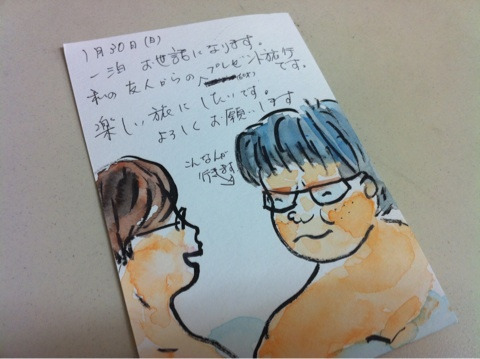 1月30日(日)
一泊 お世話になります。
私の友人からのプレゼント旅行
です。
楽しい旅にしたいです。
よろしくお願いします
こんなんが
行きます